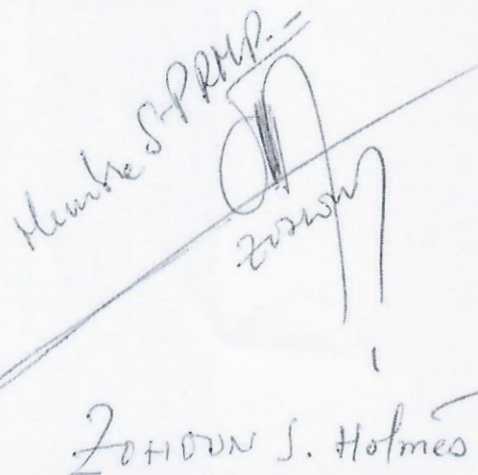 Membre S-PRMP.=
ZOHOUN
ZOHOUN S. Holmes